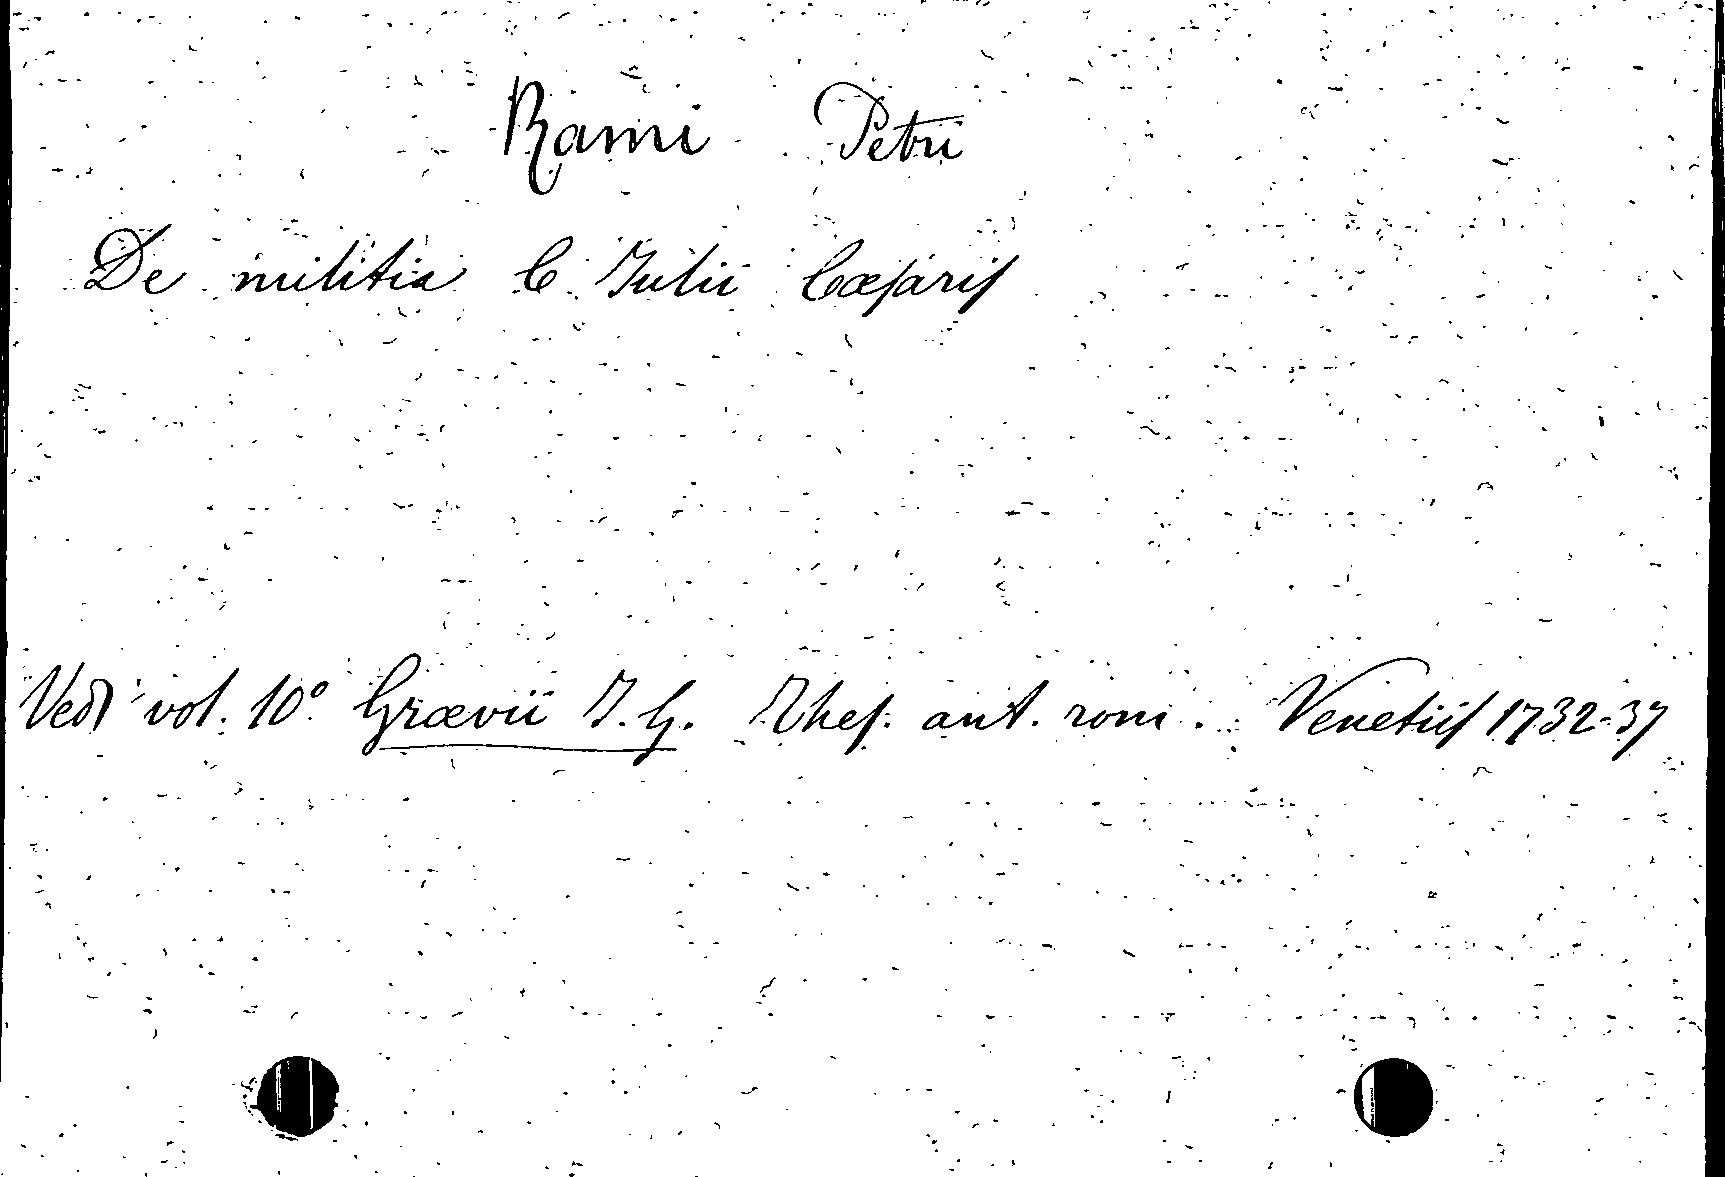 Rami Petri
De militia C Julii Cæsaris
Vedi vol. 10º Grævii J. G. Thes. ant. rom. Venetiis 1732-37